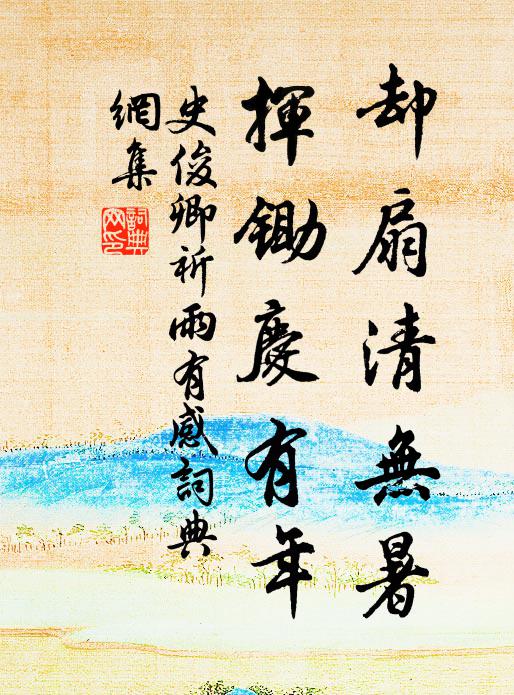 却扇清無暑
揮鋤慶有年
史俊卿祈雨有感詞典
網集
詞典
网印